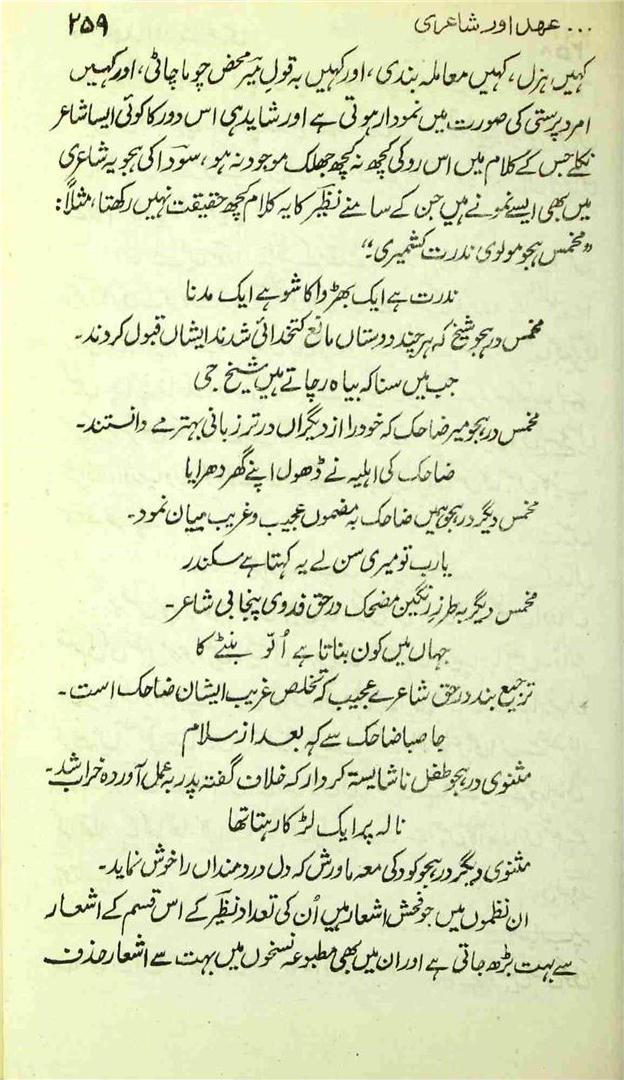 ... عہد اور شاعری ۲۵۹
کہیں ہزل، کہیں معاملہ بندی، اور کہیں بہ قولِ میرؔ محض چوما چاٹی، اور کہیں
امرد پرستی کی صورت میں نمودار ہوتی ہے اور شاید ہی اس دور کا کوئی ایسا شاعر
نکلے جس کے کلام میں اس رو کی کچھ نہ کچھ جھلک موجود نہ ہو، سوداؔ کی ہجویہ شاعری
میں بھی ایسے نمونے ہیں جن کے سامنے نظیرؔ کا یہ کلام کچھ حقیقت نہیں رکھتا، مثلاً:
"مخمس ہجو مولوی ندرت کشمیری۔"
ندرت ہے ایک بھڑوا کاشو ہے ایک مدنا
مخمس در ہجو شیخ کہ ہر چند دوستاں مانع کتخدائی شدند ایشاں قبول کردند۔
جب میں سنا کہ بیاہ رچاتے ہیں شیخ جی
مخمس در ہجو میر ضاحک کہ خود را از دیگراں در تر زبانی بہتر مے دانستند۔
ضاحک کی اہلیہ نے ڈھول اپنے گھر دھرایا
مخمس دیگر در ہجو ہمیں ضاحک بہ مضموں عجیب و غریب بیان نمود۔
یارب تو میری سن لے یہ کہتا ہے سکندر
مخمس دیگر بہ طرزِ رنگین مضحک در حق فدوی پنجابی شاعر۔
جہاں میں کون بناتا ہے اُلّو بنئے کا
ترجیع بند در حق شاعرے عجیب کہ تخلص غریب ایشان ضاحک است۔
جا صبا ضاحک سے کہہ بعد از سلام
مثنوی در ہجو طفل ناشایستہ کردار کہ خلاف گفتہ پدر بہ عمل آوردہ خراب شد۔
نالہ پر ایک لڑکا رہتا تھا
مثنوی دیگر در ہجو کودکی معہ ماورش کہ دل دردمنداں را خوش نماید۔
ان نظموں میں جو فحش اشعار ہیں اُن کی تعداد نظیرؔ کے اس قسم کے اشعار
سے بہت بڑھ جاتی ہے اور ان میں بھی مطبوعہ نسخوں میں بہت سے اشعار حذف